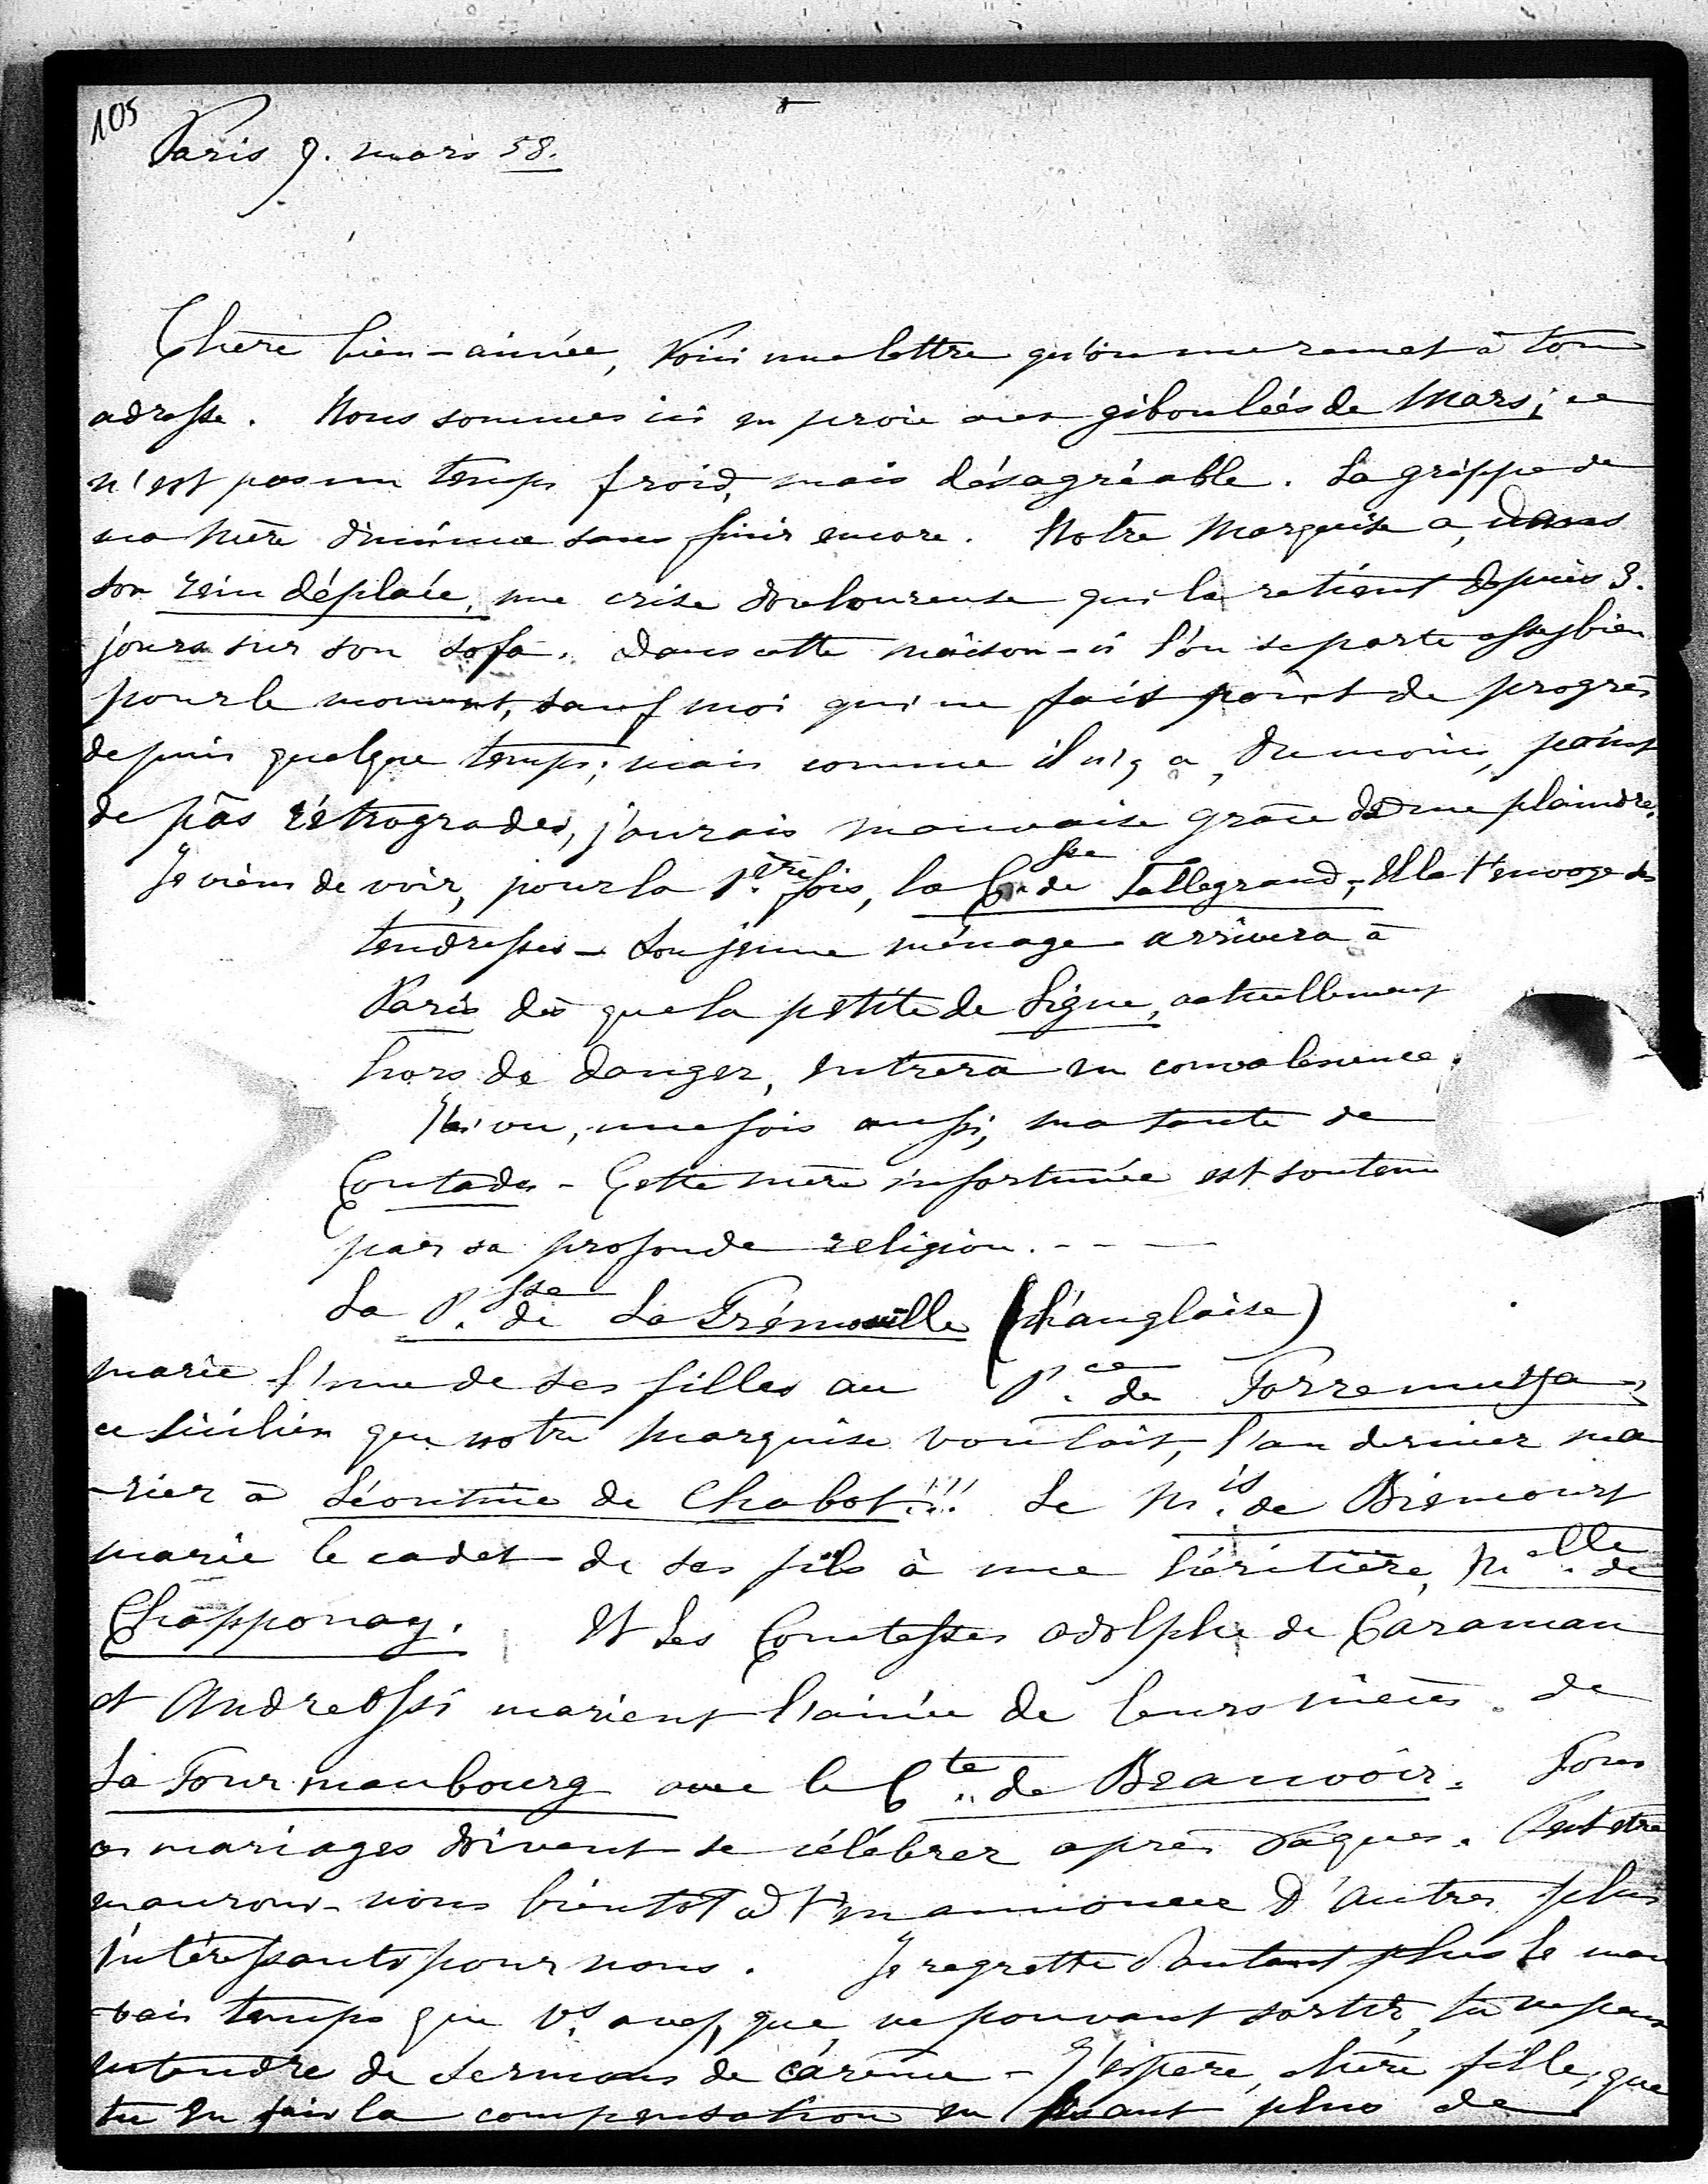 105
Paris 9. mars 58.
Chère bien-aimée, Voici une lettre qu'on me remet à ton
adresse. Nous sommes ici en proie aux giboulées de Mars; ce
n'est pas un temps froid, mais désagréable. La grippe de
ma mère diminue sans finir encore. Notre Marquise a, dans
son rein déplacé, une crise douloureuse qui la retient depuis 3.
jours sur son sofa. Dans cette maison-ci l'on se porte assez bien
pour le moment, sauf moi qui ne fait point de progrès
depuis quelque temps; mais comme il n'y a, du moins, point
de pas rétrogrades, j'aurais mauvaise grâce de me plaindre.
Je viens de voir, pour la 1ère fois, la Csse de Talleyrand; Elle t'envoye des
tendresses - Son jeune ménage arrivera à
Paris dès que la petite de Ligne, actuellement
hors de danger, entrera en convalescence.
J'ai vu, une fois aussi, ma tante de
Contades - Cette mère infortunée est soutenue
par sa profonde religion. - - -
La Psse de La Trémouille (l'anglaise)
marie l'une de ses filles au Pce de Torremuzza,
ce Sicilien que notre Marquise voulait, l'an dernier ma
-rier à Léontine de Chabot!!! Le Mis de Biencourt
marie le cadet de ses fils à une héritière, Melle de
Chapponay. Et les Comtesses Adolphe de Caraman
et Andréossi marient l'ainée de leurs nièces de
La Tour maubourg avec le Cte de Beauvoir. Tous
ces mariages doivent se célébrer après Pâques. Peut etre
n'aurons-nous bientôt à t'en annoncer d'autres plus
intéressants pour nous. Je regrette d'autant plus le mau
-vais temps que vs avez, que, ne pouvant sortir, tu ne peux
entendre de sermons de carême - J'espère, chère fille, que
tu en fais la compensation en lisant plus de